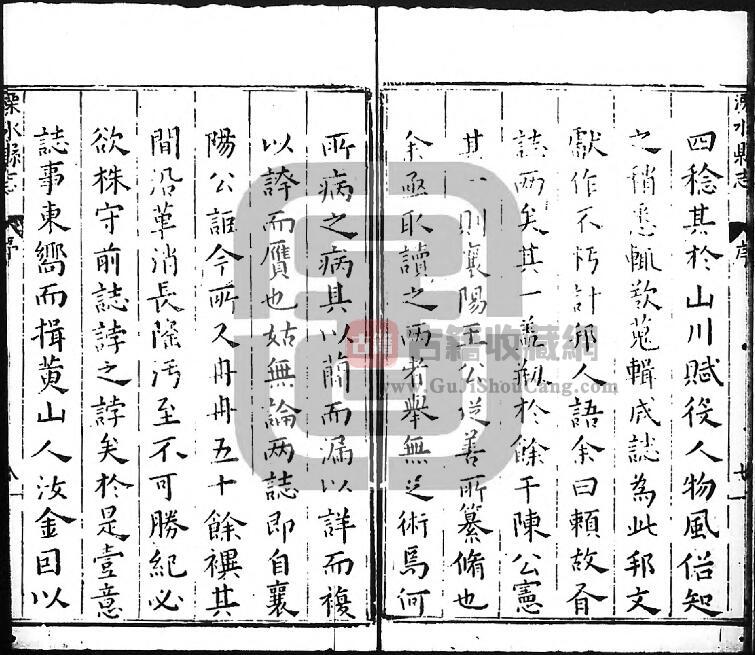 溧水縣志 序 七
四稔其於山川賦役人物風俗知
之稍悉輒欲蒐輯成誌為此邦文
獻作不朽計邦人語余曰賴故有
誌两矣其一蓋剏於餘干陳公憲
其一則襄陽王公從善所纂脩也
余亟取讀之两者舉無足術焉何
所病之病其以簡而漏以詳而複
以誇而贗也姑無論两誌即自襄
陽公詎今所又冉冉五十餘禩其
間沿革消長隆污至不可勝紀必
欲株守前誌誖之誖矣於是壹意
誌事東嚮而揖黄山人汝金囙以
溧水縣志 序 八
古籍收藏網
www.GuJiShouCang.com